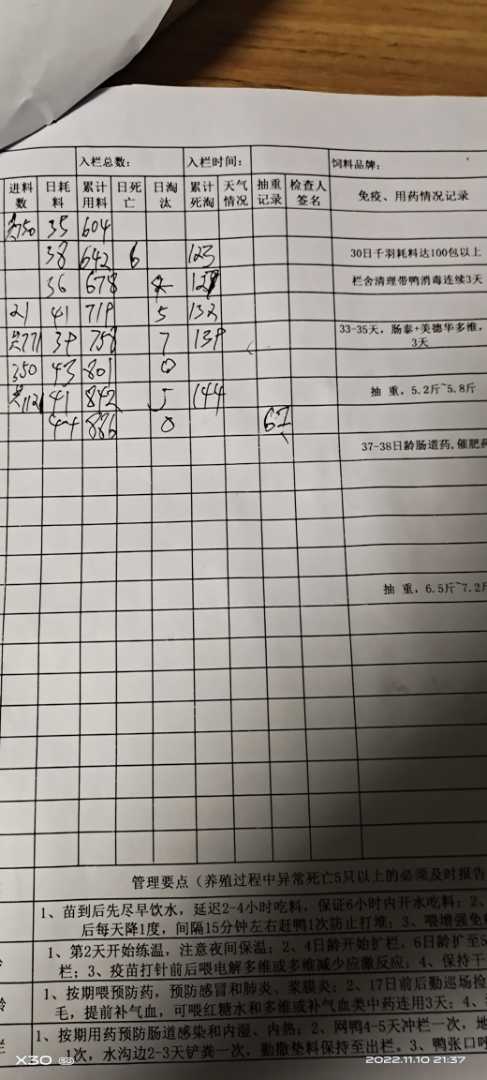 入栏总数： 入栏时间： 饲料品牌：
进料数 日耗料 累计用料 日死亡 日淘汰 累计死淘 天气情况 抽重记录 检查人签名 免疫、用药情况记录
35 604
38 642 6 123 30日千羽耗料达100包以上
36 678 栏舍清理带鸭消毒连续3天
21 41 719 5 132
39 758 7 139 33-35天，肠泰+美德华多维，3天
350 43 801 0
41 842 5 144 抽 重，5.2斤~5.8斤
44 886 0
37-38日龄肠道药，催肥药
抽 重，6.5斤~7.2斤
管理要点（养殖过程中异常死亡5只以上的必须及时报告
1、苗到后先尽早饮水，延迟2-4小时吃料，保证6小时内开水吃料；2、
后每天降1度，间隔15分钟左右赶鸭1次防止打堆；3、喂增强免
1、第2天开始练温，注意夜间保温；2、4日龄开始扩栏，6日龄扩至5
栏；3、疫苗打针前后喂电解多维或多维减少应激反应；4、保持干
1、按期喂预防药，预防感冒和肺炎、浆膜炎；2、17日前后勤巡场捡
毛，提前补气血，可喂红糖水和多维或补气血类中药连用3天；4、
1、按期用药预防肠道感染和内湿、内热；2、网鸭4-5天冲栏一次，地
1次，水沟边2-3天铲粪一次，勤撒垫料保持至出栏。3、鸭张口呼
X30
2022.11.10 21:37